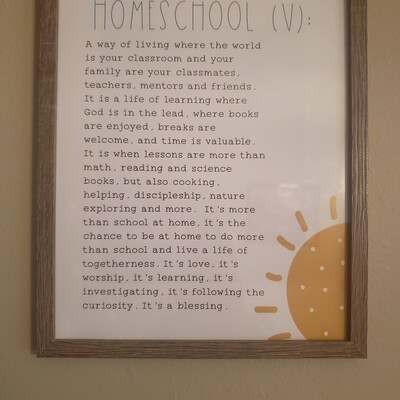 HOMESCHOOL (V):
A way of living where the world
is your classroom and your
family are your classmates,
teachers, mentors and friends.
It is a life of learning where
God is in the lead, where books
are enjoyed, breaks are
welcome, and time is valuable.
It is when lessons are more than
math, reading and science
books, but also cooking,
helping, discipleship, nature
exploring and more. It's more
than school at home, it's the
chance to be at home to do more
than school and live a life of
togetherness. It's love, it's
worship, it's learning, it's
investigating, it's following the
curiosity. It's a blessing.